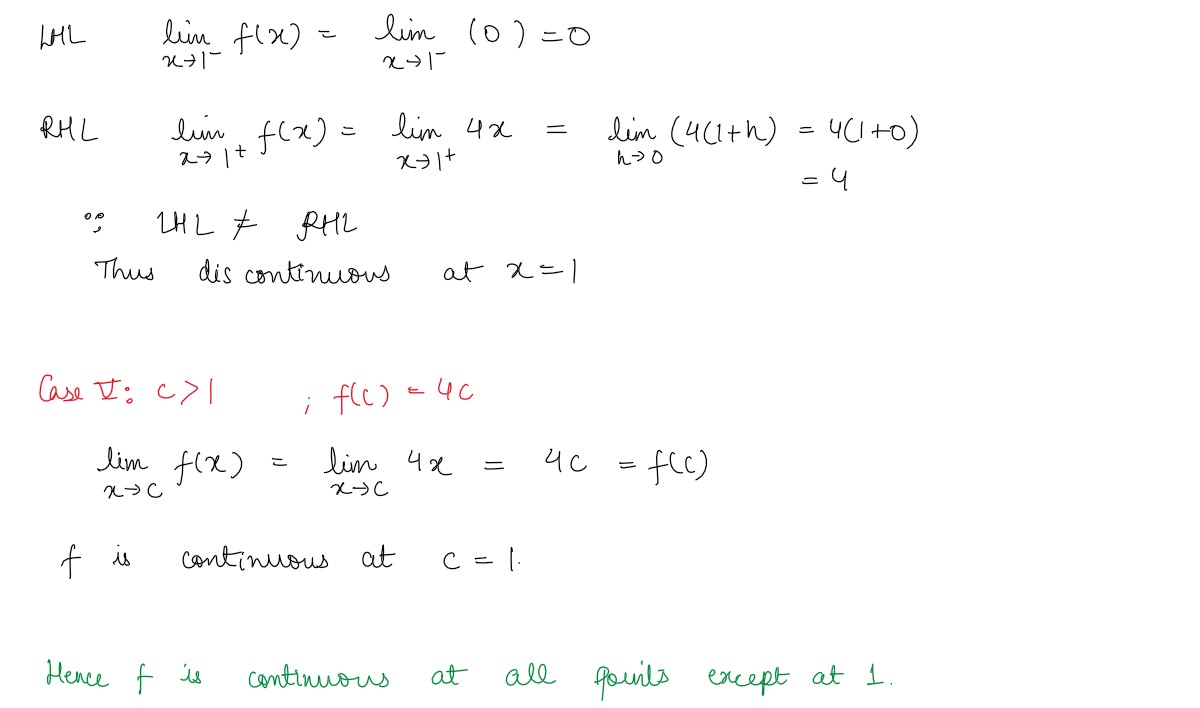 LHL lim x→1⁻ f(x) = lim x→1⁻ (0) = 0
RHL lim x→1⁺ f(x) = lim x→1⁺ 4x = lim h→0 (4(1+h) = 4(1+0)
= 4
∵ LHL ≠ RHL
Thus discontinuous at x = 1
Case V: c > 1 ; f(c) = 4c
lim x→c f(x) = lim x→c 4x = 4c = f(c)
f is continuous at c = 1.
Hence f is continuous at all points except at 1.